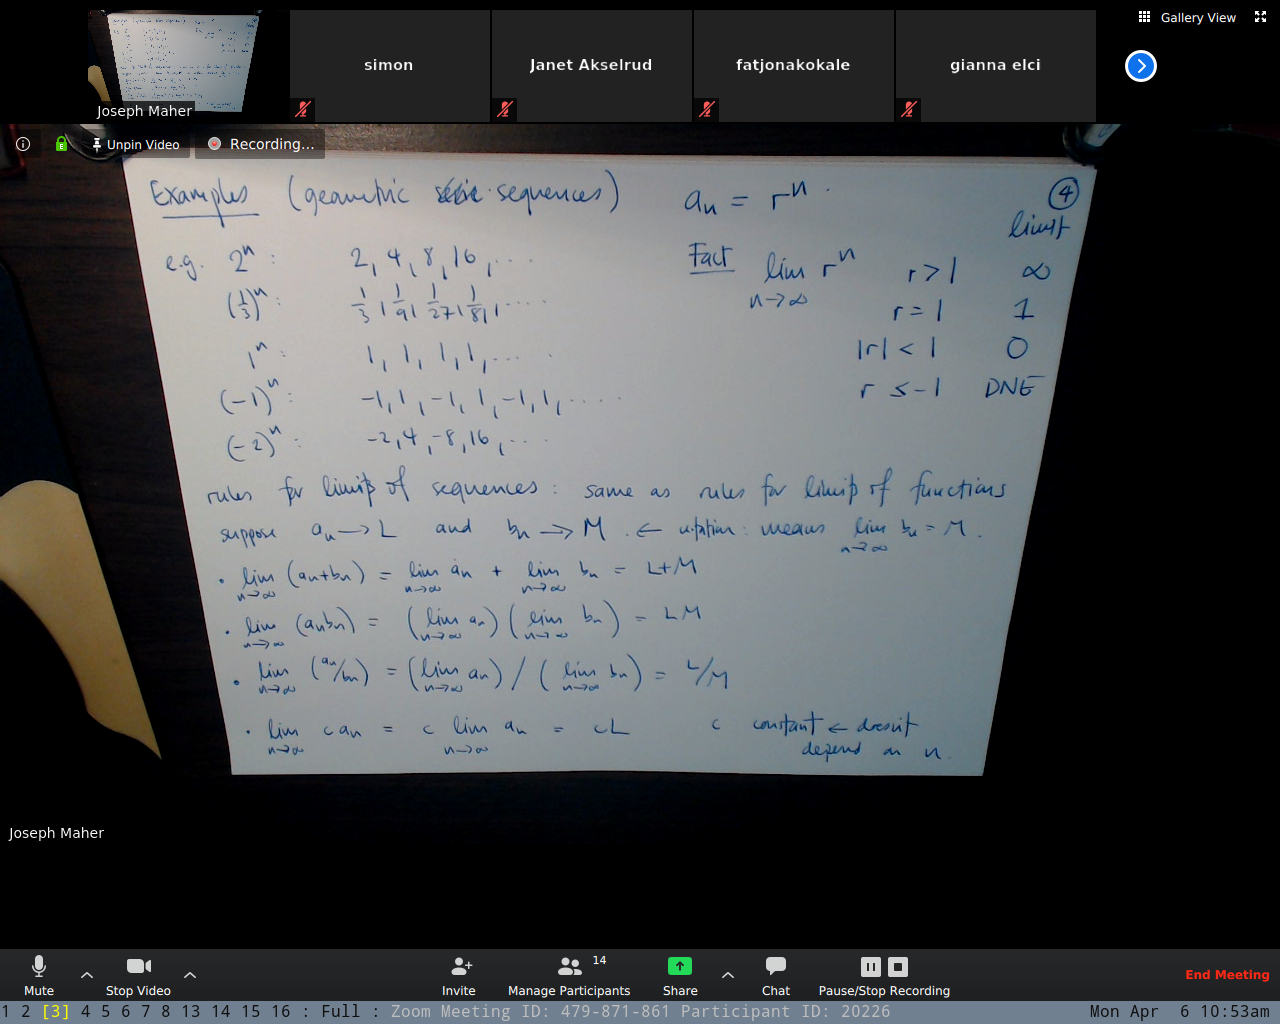 Gallery View
simon
Janet Akselrud
fatjonakokale
gianna elci
Joseph Maher
Unpin Video
Recording...
Examples (geometric sequences) aₙ = rⁿ. ④
limit
e.g. 2ⁿ : 2, 4, 8, 16, .... Fact lim n→∞ rⁿ r > 1 ∞
(1/3)ⁿ : 1/3, 1/9, 1/27, 1/81, ..... r = 1 1
1ⁿ : 1, 1, 1, 1, .... |r| < 1 0
(-1)ⁿ : -1, 1, -1, 1, -1, 1, ..... r ≤ -1 DNE
(-2)ⁿ : -2, 4, -8, 16, ....
rules for limits of sequences : same as rules for limits of functions
suppose aₙ → L and bₙ → M . ← notation : means lim n→∞ bₙ = M .
• lim n→∞ (aₙ+bₙ) = lim n→∞ aₙ + lim n→∞ bₙ = L+M
• lim n→∞ (aₙbₙ) = (lim n→∞ aₙ) (lim n→∞ bₙ) = LM
• lim n→∞ (aₙ/bₙ) = (lim n→∞ aₙ) / (lim n→∞ bₙ) = L/M
• lim n→∞ c aₙ = c lim n→∞ aₙ = cL c constant ← doesn't
depend on n.
Joseph Maher
Mute
Stop Video
Invite
Manage Participants 14
Share
Chat
Pause/Stop Recording
End Meeting
1 2 [3] 4 5 6 7 8 13 14 15 16 : Full : Zoom Meeting ID: 479-871-861 Participant ID: 20226 Mon Apr 6 10:53am